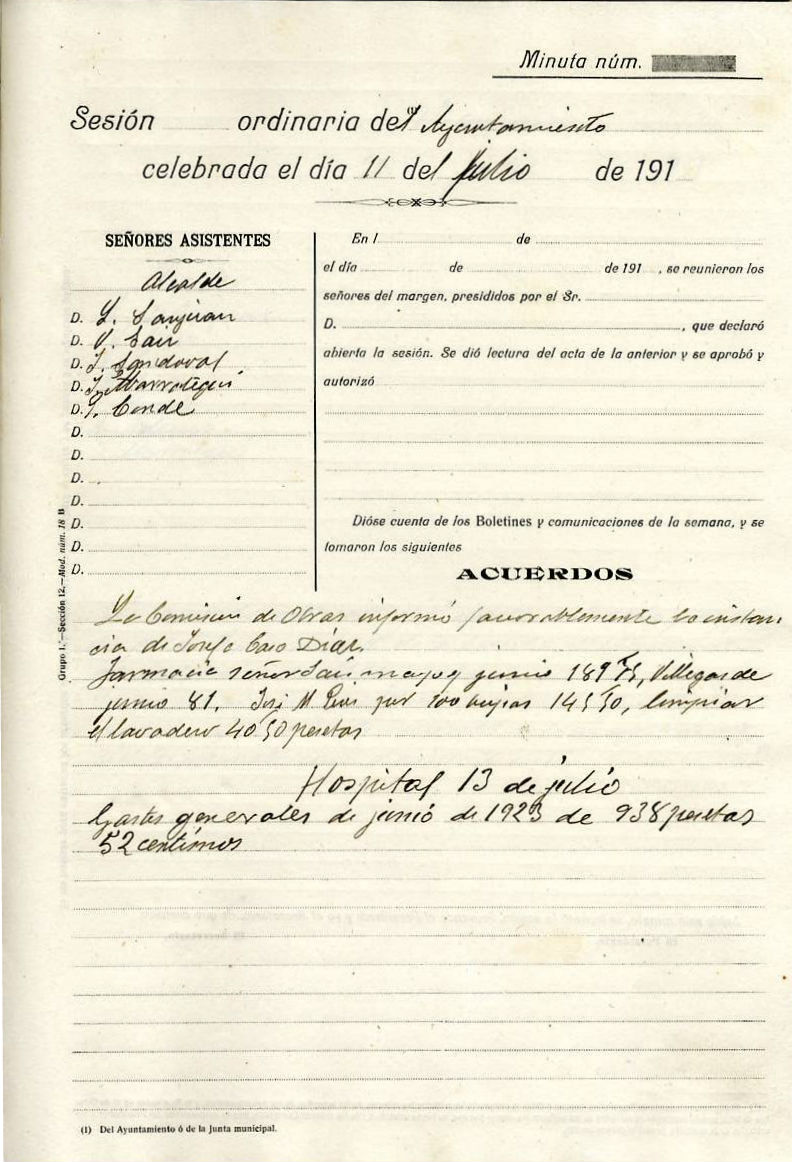 Minuta núm.
Sesión ordinaria del (1) Ayuntamiento
celebrada el día 11 del julio de 191
SEÑORES ASISTENTES
Alcalde
D. L. Sanjuan
D. V. Sain
D. J. Sandoval
D. J. Marrategui
D. J. Conde
D.
D.
D.
D.
D.
D.
D.
En l de
el día de de 191 , se reunieron los
señores del margen, presididos por el Sr.
D. , que declaró
abierta la sesión. Se dió lectura del acta de la anterior y se aprobó y
autorizó
Dióse cuenta de los Boletines y comunicaciones de la semana, y se
tomaron los siguientes
ACUERDOS
La Comisión de Obras informó favorablemente la instan
cia de Josefa Caro Díaz.
Farmacia señor Sain mayo y junio 189 75, Villegas de
junio 81. José M por 100 bujias 145 50, limpiar
el lavadero 40 50 pesetas
Hospital 13 de julio
Gastos generales de junio de 1923 de 938 pesetas
52 centimos
Grupo 1.º—Sección 12.—Mod. núm. 18 B
(1) Del Ayuntamiento ó de la Junta municipal.